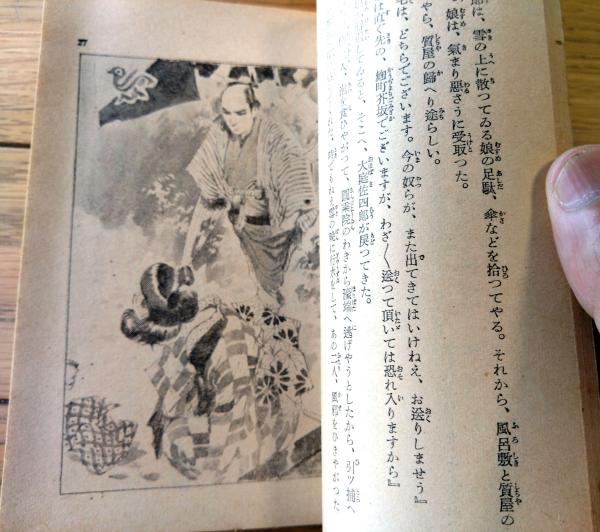 郎は、雪の上に散つてゐる娘の足駄、傘などを拾つてやる。それから、風呂敷と質屋の
娘は、氣まり惡さうに受取つた。
やら、質屋の歸へり途らしい。
は、どちらでございます。今の奴らが、また出てきてはいけねえ、お送りしませう』
は直ぐ先の、麹町芥坂でございますが、わざ〱送つて頂いては恐れ入りますから』
してゐると、そこへ、大庭佐四郎が戻つてきた。
人、泡を食ひやがつて、圓乘院のわきから濠端へ逃げやうとしたから、引ツ捕へ
雪の晩に行水をして、あの二人、風邪をひきやがつた
27